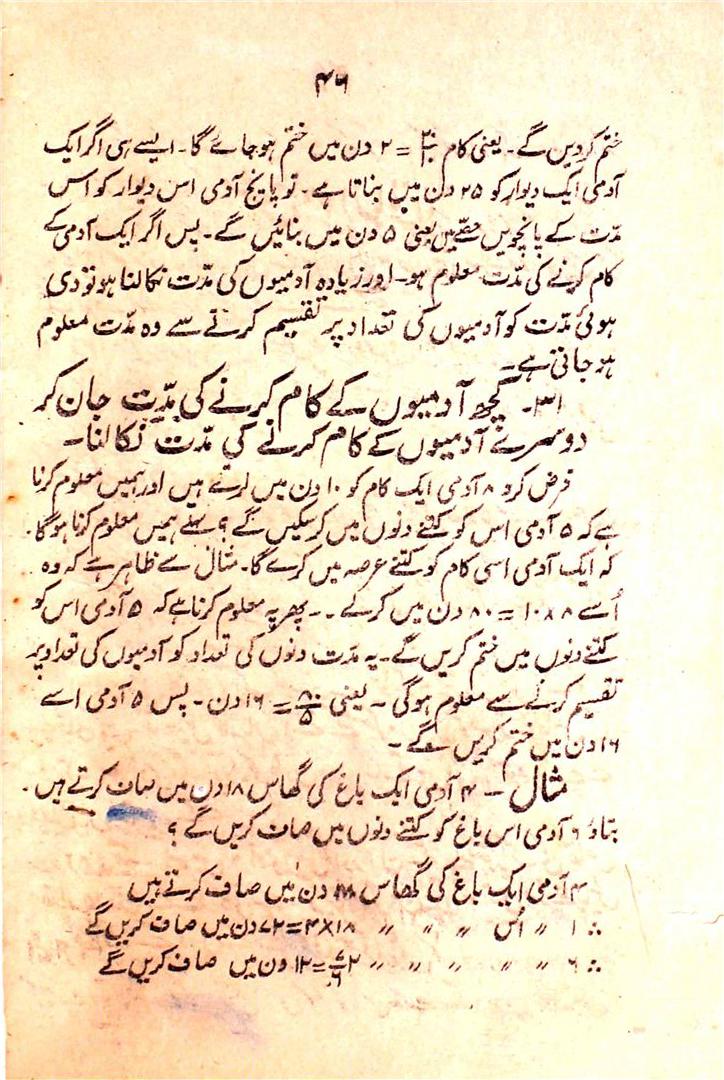 ۴۶
ختم کر دیں گے۔ یعنی کام ۲۰/۱۰ = ۲ دن میں ختم ہو جائے گا۔ ایسے ہی اگر ایک
آدمی ایک دیوار کو ۲۵ دن میں بناتا ہے۔ تو پانچ آدمی اس دیوار کو اس
مدّت کے پانچویں حصّے میں یعنی ۵ دن میں بنائیں گے۔ پس اگر ایک آدمی کے
کام کرنے کی مدّت معلوم ہو۔ اور زیادہ آدمیوں کی مدّت نکالنا ہو تو دی
ہوئی مدّت کو آدمیوں کی تعداد پر تقسیم کرنے سے وہ مدّت معلوم
ہو جاتی ہے۔
۳۱۔ کچھ آدمیوں کے کام کرنے کی مدّت جان کر
دوسرے آدمیوں کے کام کرنے کی مدّت نکالنا۔
فرض کرو ۸ آدمی ایک کام کو ۱۰ دن میں کرتے ہیں اور ہمیں معلوم کرنا
ہے کہ ۵ آدمی اس کو کتنے دنوں میں کر سکیں گے؟ پہلے ہمیں معلوم کرنا ہو گا۔
کہ ایک آدمی اسی کام کو کتنے عرصہ میں کرے گا۔ مثال سے ظاہر ہے کہ وہ
اُسے ۸ × ۱۰ = ۸۰ دن میں کرے۔۔ پھر یہ معلوم کرنا ہے کہ ۵ آدمی اس کو
کتنے دنوں میں ختم کریں گے۔ یہ مدّت دنوں کی تعداد کو آدمیوں کی تعداد پر
تقسیم کرنے سے معلوم ہوگی۔ یعنی ۸۰/۵ = ۱۶ دن۔ پس ۵ آدمی اسے
۱۶ دن میں ختم کریں گے۔
مثال ۔ ۴ آدمی ایک باغ کی گھاس ۱۸ دن میں صاف کرتے ہیں۔
بتاؤ ۶ آدمی اس باغ کو کتنے دنوں میں صاف کریں گے؟
۴ آدمی ایک باغ کی گھاس ۱۸ دن میں صاف کرتے ہیں
∴ ۱ " اُس " " " ۱۸×۴=۷۲ دن میں صاف کریں گے
∴ ۶ " " " " " ۷۲/۶=۱۲ دن میں صاف کریں گے